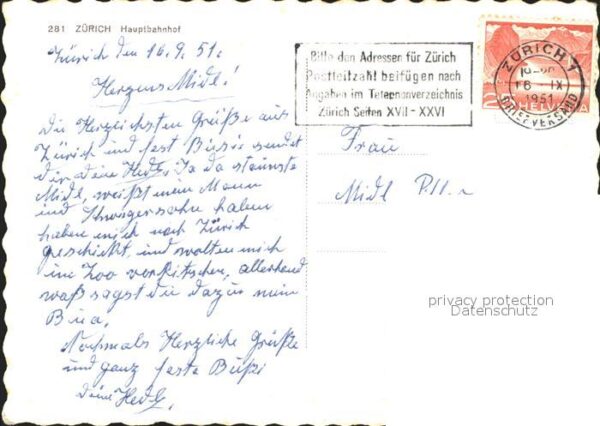 281 ZÜRICH Hauptbahnhof
Zürich den 16.9.51.
Herzens Midl!
Die Herzlichsten Grüße aus
Zürich und fest Busie sendet
dir deine Hedy. Ja da staunste
Midl, weißt mein Mann
und Schwiegersohn haben
haben mich nach Zürich
geschickt, und wollten mich
im Zoo verkitschen, allerhand
waß sagst du dazu mein
Bua,
Nochmals Herzliche Grüße
und ganz feste Bußi
deine Hedy.
Bitte den Adressen für Zürich
Postleitzahl beifügen nach
Angaben im Telephonverzeichnis
Zürich Seiten XVII-XXVI
ZÜRICH 1
16 IX
1951
BRIEFVERSAND
HELVETIA
Frau
Midl
privacy protection
Datenschutz